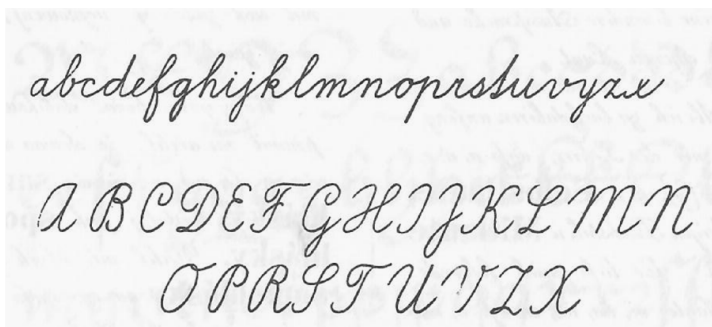 abcdefghijklmnoprstuvyzx
ABCDEFGHIJKLMN
OPRSTUVZX